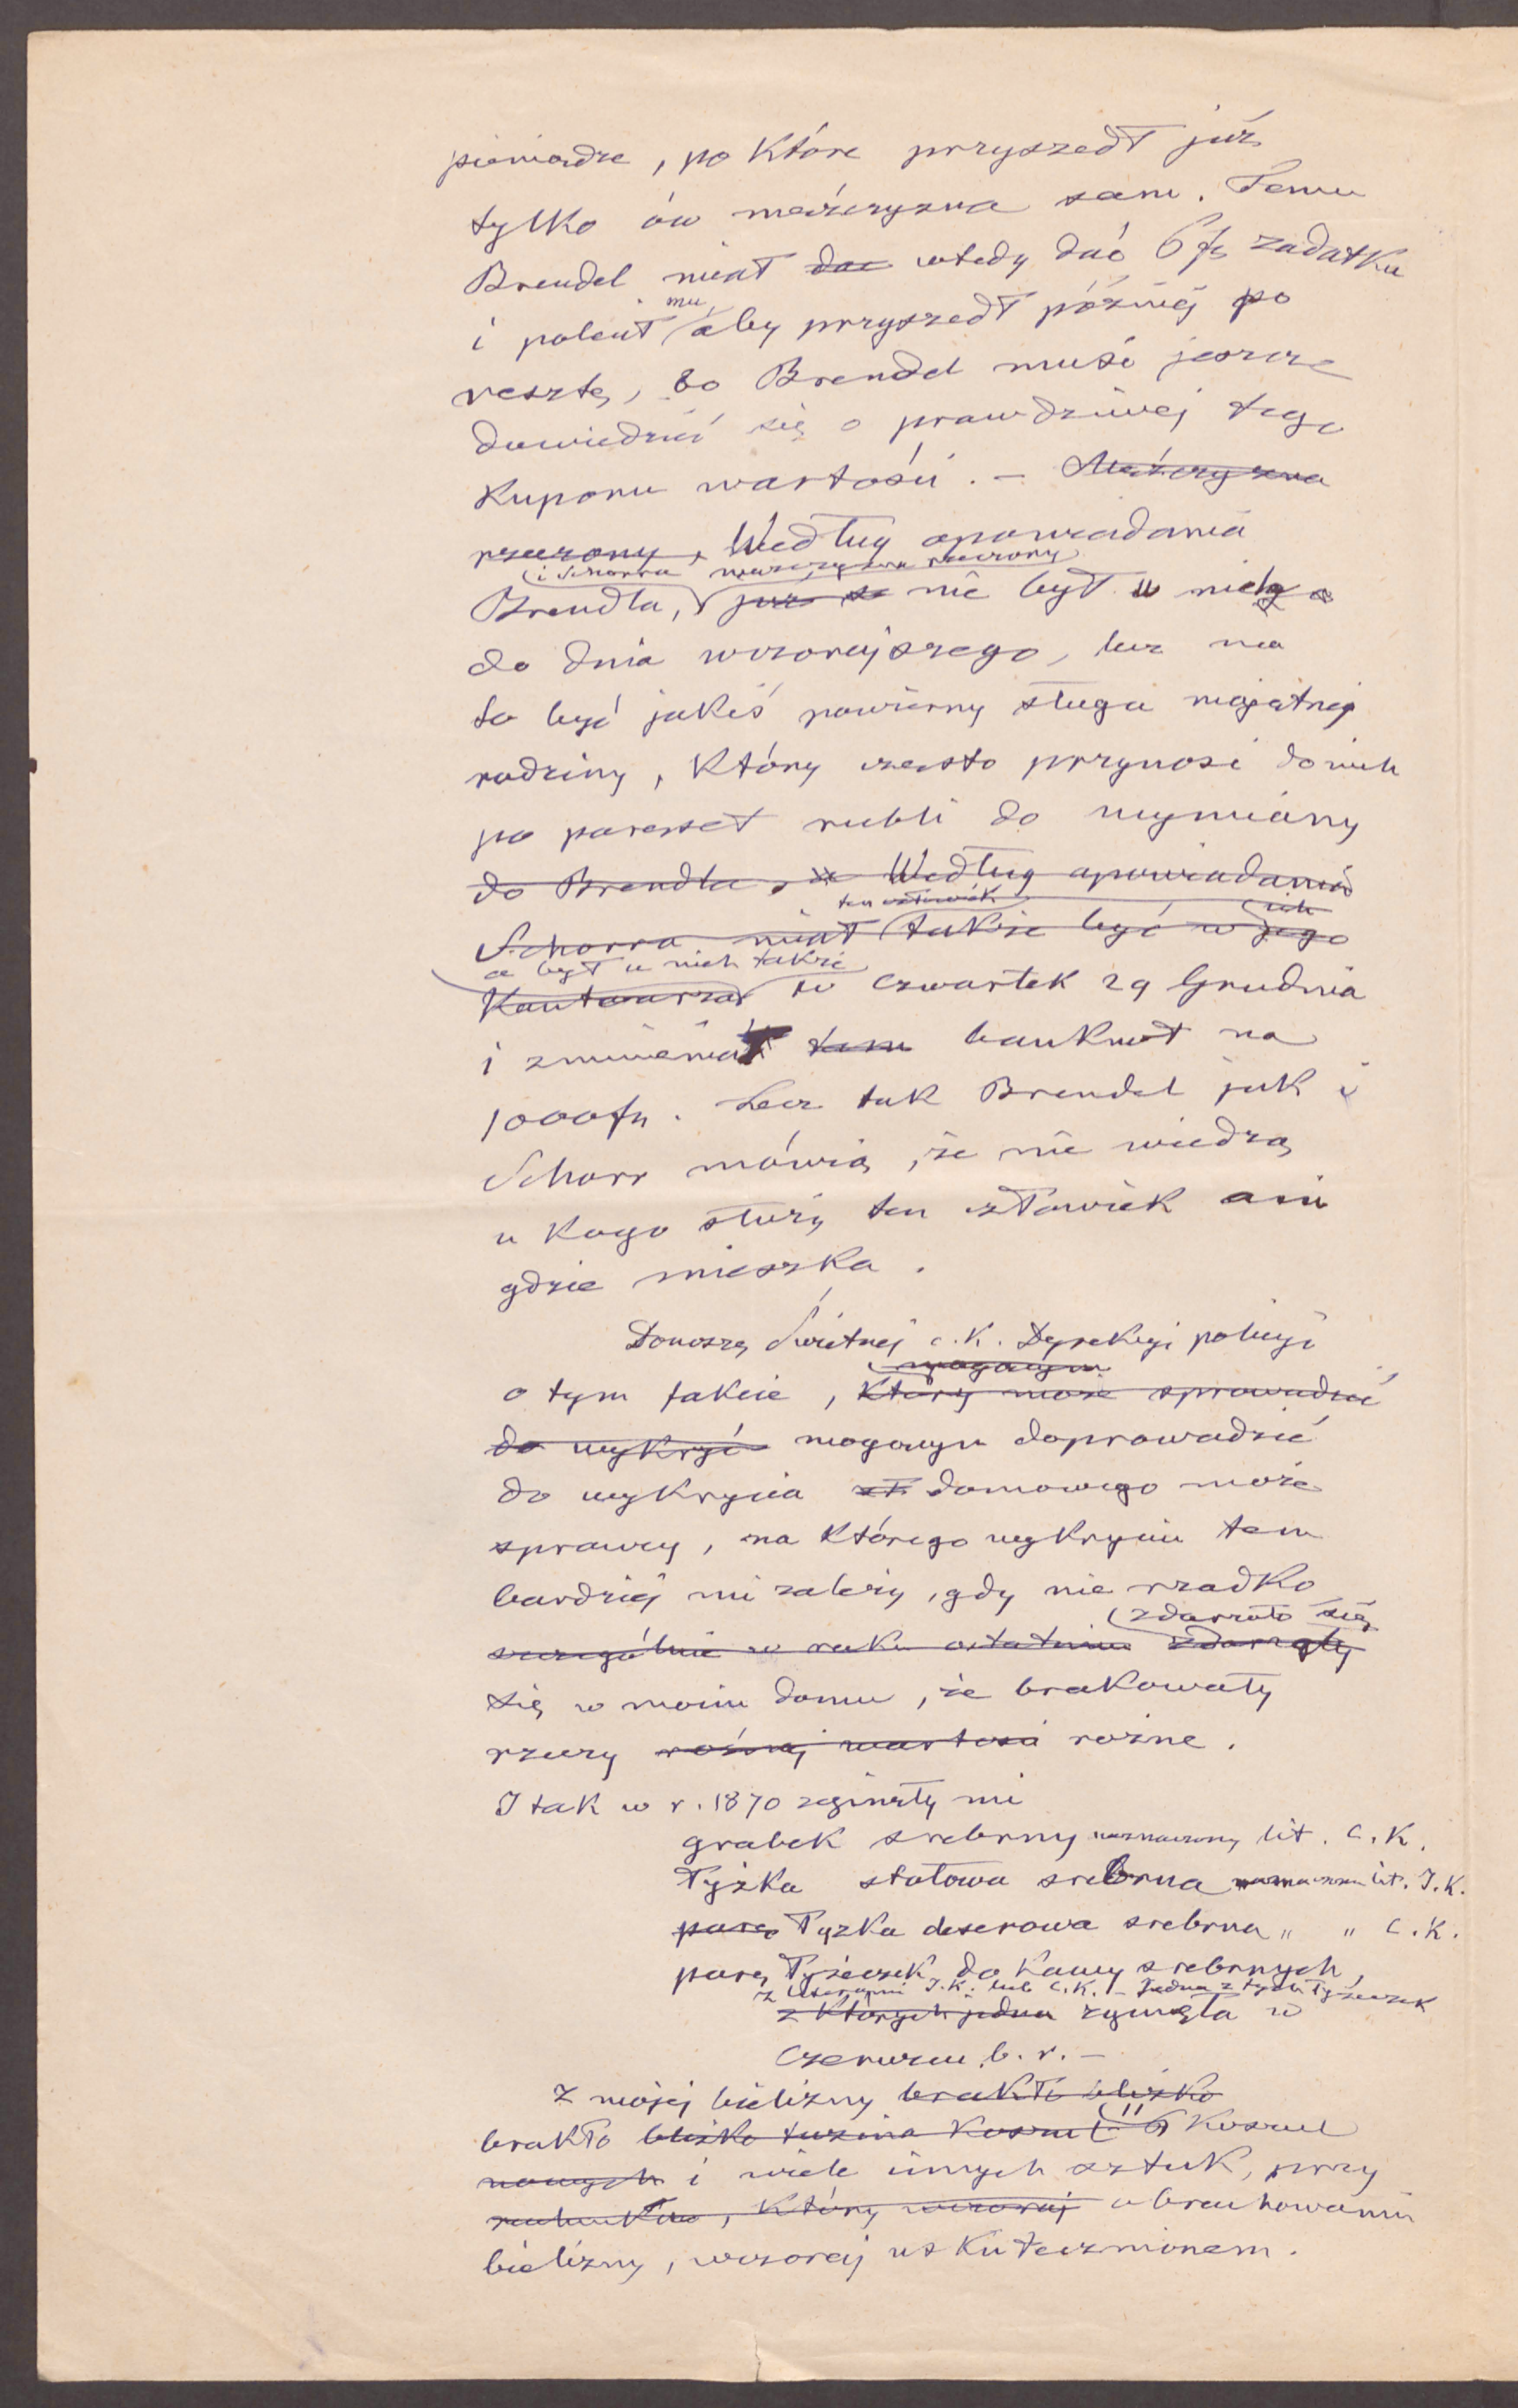 pieniądze, po które przyszedł już
tylko ów mężczyzna sam. Temu
Brendel miał dać wtedy dać 6 fl zadatku
i polecił mu aby przyszedł później po
resztę, bo Brendel musi jeszcze
dowiedzieć się o prawdziwej tego
kuponu wartości. – Mężczyzna
rzeczony, Według opowiadania
i Schorra mężczyzna rzeczony
Brendla, już nie był u nich
do dnia wczorajszego, lecz ma
to być jakiś powierny sługa majętnej
rodziny, który często przynosi do nich
po pareset rubli do wymiany
do Brendla, Według opowiadania
ten człowiek ich
Schorra miał także być w jego
a był u nich także
Kantorze w Czwartek 29 Grudnia
i zmieniał tam banknot na
1000 fl. Lecz tak Brendel jak i
Schorr mówią, że nie wiedzą
u kogo służy ten człowiek ani
gdzie mieszka.
Donoszę Świetnej c. K. Dyrekcyi policyi
mogącym
o tym fakcie, który może sprowadzić
do wykryć mogącym doprowadzić
do wykrycia domowego może
sprawcy, na którego wykryciu tem
bardziej mi zależy, gdy nie rzadko
zdarzało się
szczególnie w roku ostatnim zdarzały
się w moim domu, że brakowały
rzeczy różnej wartości rożne.
I tak w r. 1870 zginęły mi
grabek srebrny naznaczony lit. C. K.
Łyżka stołowa srebrna naznaczona lit. J. K.
parę Łyżka deserowa srebrna " " C. K.
parę Łyżeczek do Kawy srebrnych,
z literami J. K. lub C. K. – Jedna z tych łyżeczek
z których jedna zginęła w
Czerwcu b. r. –
Z mojej bielizny brakło blizko
brakło blizko tuzina koszul 6 Koszul
nowych i wiele innych sztuk, przy
rachunku, który wczoraj obrachowaniu
bielizny, wczoraj uskutecznionem.